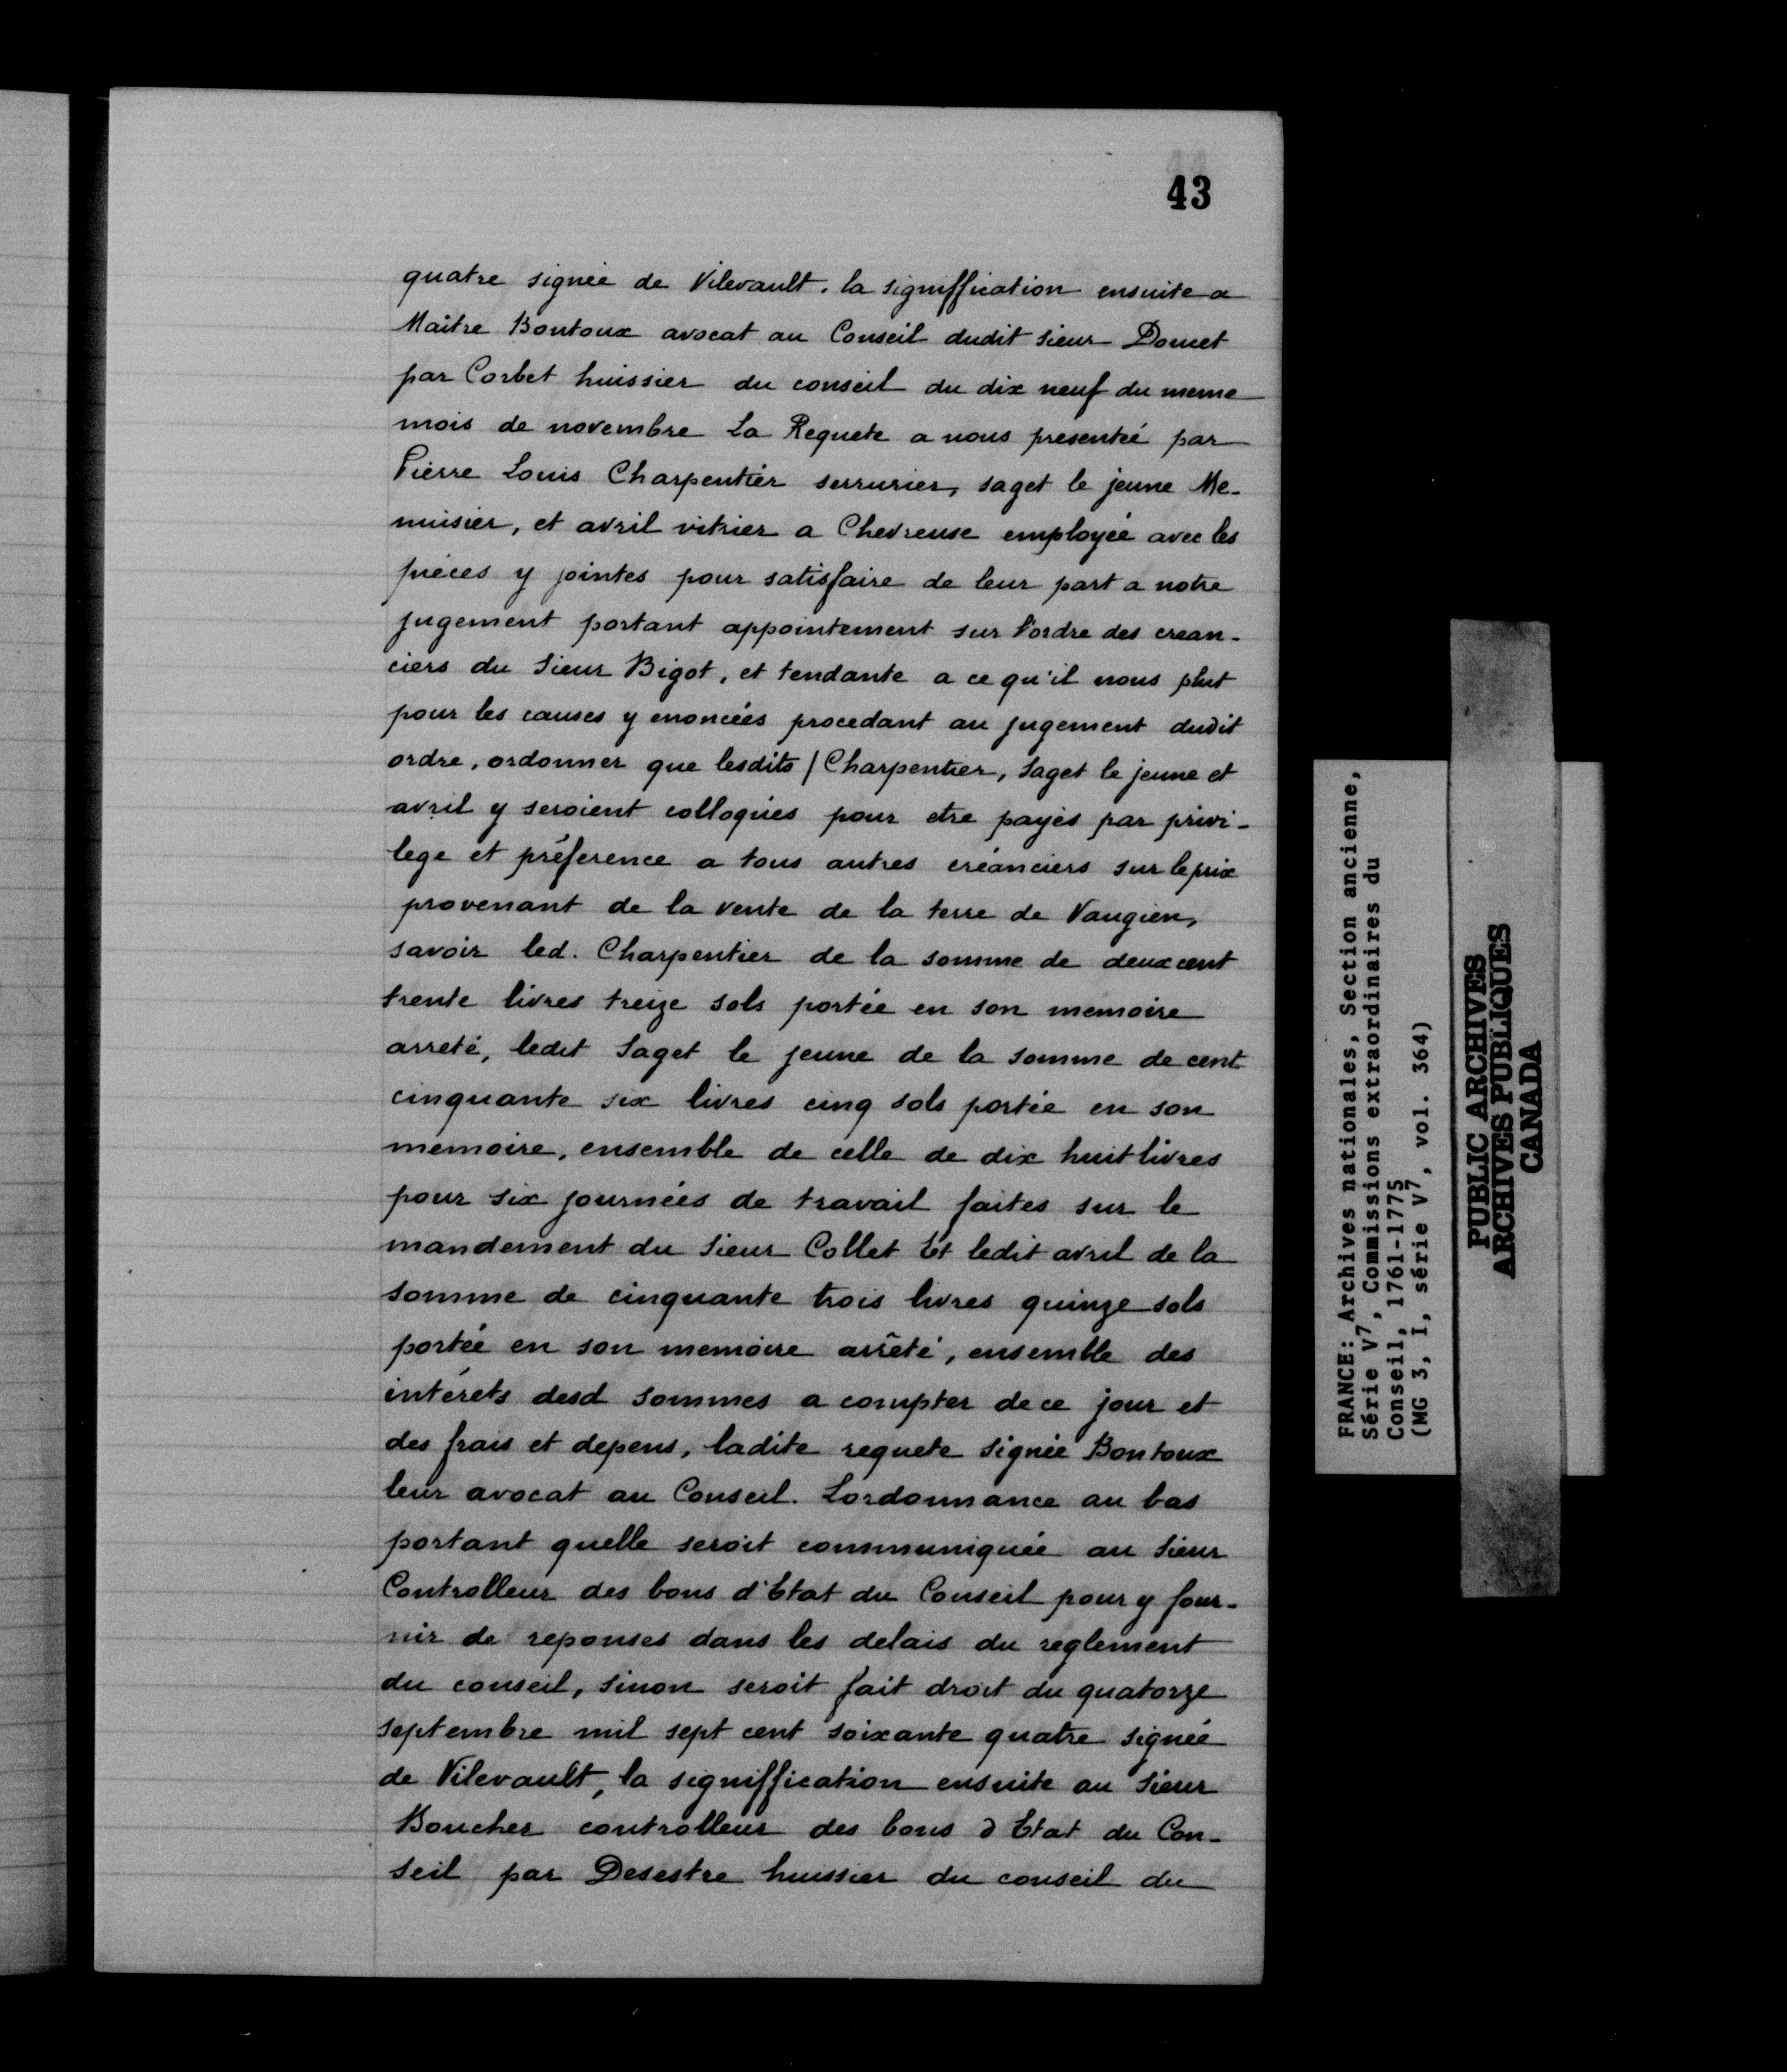 43
quatre signée de Vilevault. la signiffication ensuite a
Maitre Bontoux avocat au Conseil dudit sieur Doucet
par Corbet huissier du conseil du dix neuf du meme
mois de novembre La Requete a nous presentée par
Pierre Louis Charpentier serrurier, saget le jeune Me-
nuisier, et avril vitrier a Chevreuse employée avec les
pièces y jointes pour satisfaire de leur part a notre
jugement portant appointement sur l'ordre des crean-
ciers du Sieur Bigot, et tendante a ce qu'il nous plut
pour les causes y enoncées procedant au jugement dudit
ordre, ordonner que lesdits / Charpentier, Saget le jeune et
avril y seroient colloqués pour etre payés par privi-
lege et préference a tous autres créanciers sur le prix
provenant de la vente de la terre de Vaugien,
savoir led. Charpentier de la somme de deux cent
trente livres treize sols portée en son memoire
arreté, ledit Saget le jeune de la somme de cent
cinquante six livres cinq sols portée en son
mémoire, ensemble de celle de dix huit livres
pour six journées de travail faites sur le
mandement du Sieur Collet Et ledit avril de la
somme de cinquante trois livres quinze sols
portée en son memoire arrêté, ensemble des
intérets desd sommes a compter de ce jour et
des frais et depens, ladite requete signée Bontoux
leur avocat au Conseil. Lordonnance au bas
portant quelle seroit communiquée au Sieur
Controlleur des bons d'Etat du Conseil pour y four-
nir de reponses dans les delais du reglement
du conseil, sinon seroit fait droit du quatorze
septembre mil sept cent soixante quatre signée
de Vilevault, la signiffication ensuite au Sieur
Boucher controlleur des bons d Etat du Con-
seil par Desestre huissier du conseil du
FRANCE: Archives nationales, Section ancienne,
Série V7, Commissions extraordinaires du
Conseil, 1761-1775
(MG 3, I, série V7, vol. 364)
PUBLIC ARCHIVES
ARCHIVES PUBLIQUES
CANADA